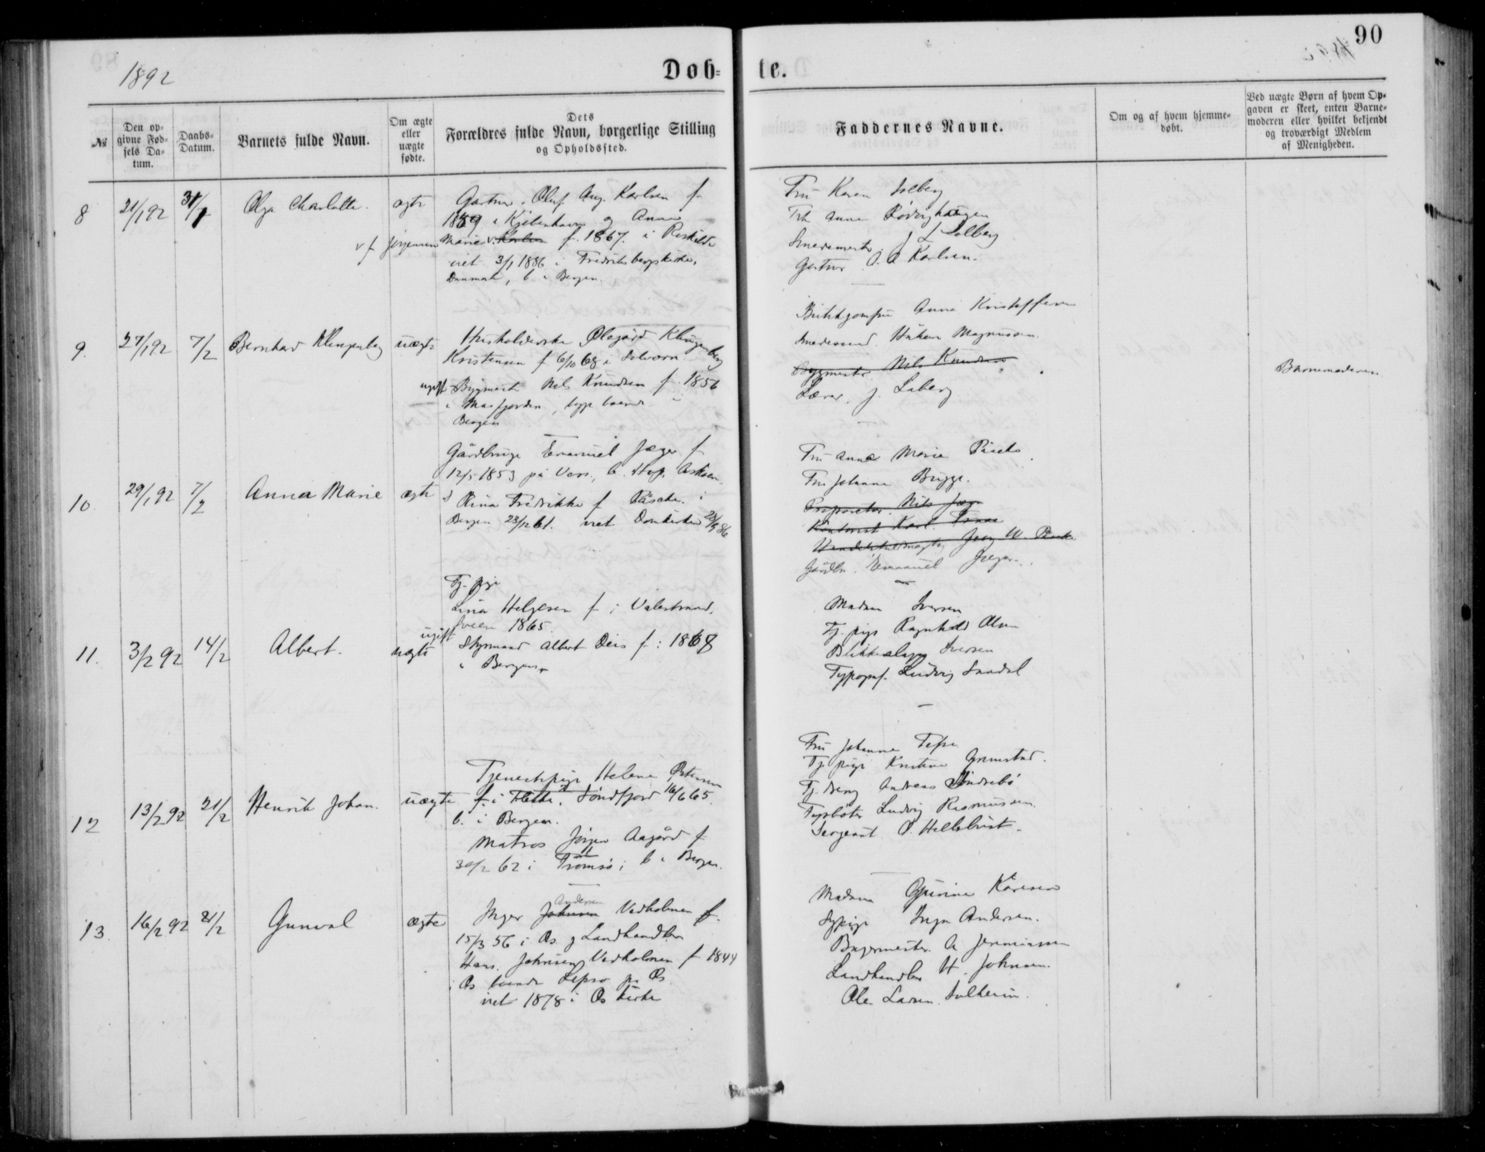 90
1892
Døb-
te.
№
Den op-
givne Fød-
sels Da-
tum.
Daabs-
Datum.
Barnets fulde Navn.
Om ægte
eller
uægte
fødte.
Dets
Forældres fulde Navn, borgerlige Stilling
og Opholdssted.
Faddernes Navne.
Om og af hvem hjemme-
døbt.
Ved uægte Børn af hvem Op-
gaven er skeet, enten Barne-
moderen eller hvilket bekjendt
og troværdigt Medlem
af Menigheden.
8
21/1 92
31/1
Olga Charlotte.
ægte
Gartner Oluf Aug. Karlsen f
1859 i Kjøbenhavn og Anna
Marie f. 1867. i Roskilde
viet 3/1 1886 i Fredriksbergkirke,
Danmark, b. i Bergen.
Fru Karen Solberg
Frk Anna
Smedemester J L Solberg
Gartner O. A Karlsen.
9.
27/1 92
7/2
Bernhard Klingenberg
uægte
Husholderske Olegård Klingenberg
Kristensen f 6/10 68 i Solvorn
ugift Bygmester Nils Knudsen f 1856
i Masfjorden, begge boende i
Bergen
Anna Kristoffersen
Smedesvend Håkon Magnusson
Bygmester Nils Knudsen
Lærer. J. Laberg
Barnemoderen
10
29/1 92
7/2
Anna Marie
ægte
Gårdbruger Emanuel Jæger f
12/5 1853 på Voss, b. Askøen.
Rina Fredrikke f Påsche. i
Bergen 23/12 61. viet Domkirken
Fru Anna Marie
Fru Johanne Brygge.
Proprietær Nils Jæger
Kontorist Karl
Gårdbr. Emanuel Jæger.
11.
3/2 92
14/2
Albert.
uægte
Tj. pige
Lina Helgesen f. i Valestrand.
1865.
ugift
Styrmand Albert Deis f: 1868
i Bergen
Madam Iversen
Tj. pige Ragnhild Olsen
Blikkenslager Iversen
Typograf. Ludvig Sandal
12
13/2 92
21/2
Henrik Johan.
uægte
Tjenestepige Helene Petersen
f. i Søndfjord 16/6 65.
b. i Bergen.
Matros Jørgen Aagård f
30/2 62 i Tromsø; b i Bergen.
Fru Johanne
Tj. pige Kristine Grimstad.
Tj. dreng Andreas Sondrebø
Fyrbøter Ludvig Rasmussen
Sergeant O. Hellebust.
13
16/2 92
21/2
Gunval
ægte
Andersen
Inger Johnsen Vedholmen f.
15/3 56 i Os. g Landhandler
Hans. Johnsen Vedholmen f 1844
i Os boende Lepsø pr. Os
viet 1878 i Os kirke
Madam Gurine Karlsen
Sypige Inga Andersen.
Bagermester A Jeremiassen
Landhandler H. Johnsen.
Ole Larsen